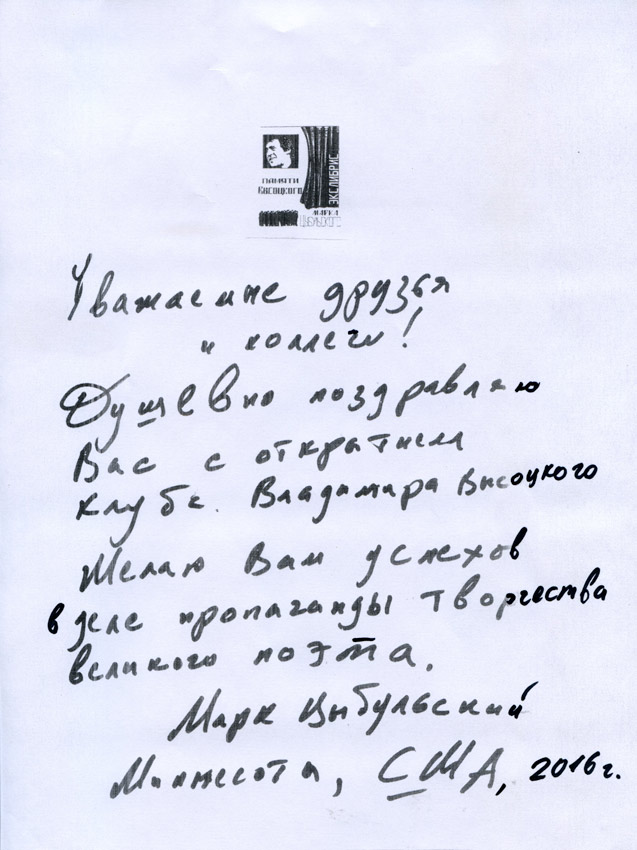 ПАМЯТИ
Высоцкого
ЭКСЛИБРИС
МАРКА
Уважаемые друзья
и коллеги!
Душевно поздравляю
Вас с открытием
клуба Владимира Высоцкого
Желаю Вам успехов
в деле пропаганды творчества
великого поэта.
Марк Цыбульский
Миннесота, США, 2016 г.